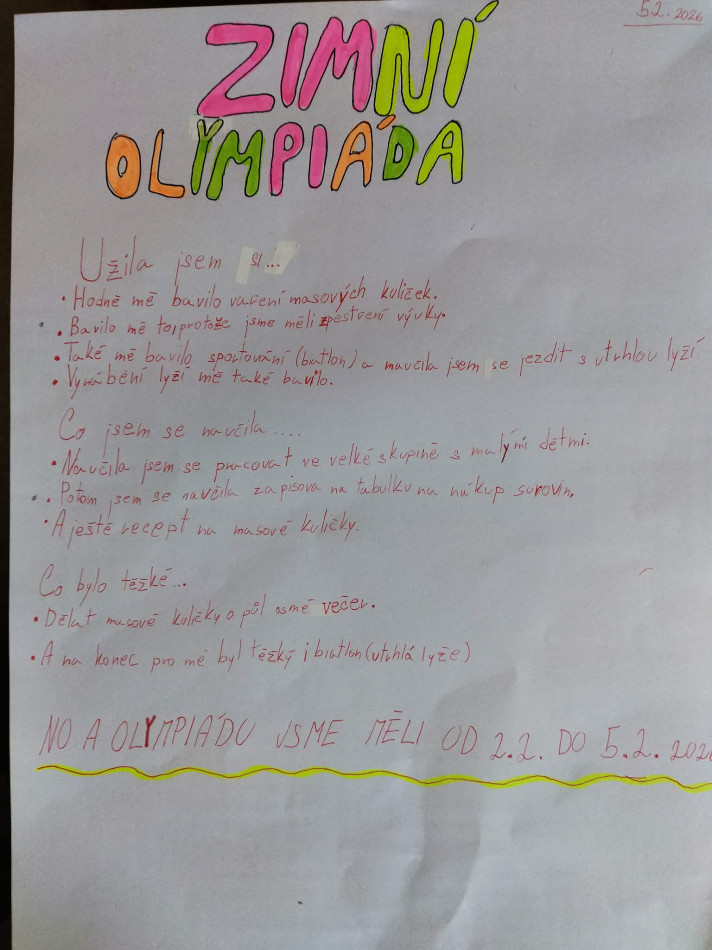 5.2. 2026
ZIMNÍ
OLYMPIÁDA
Užila jsem si...
• Hodně mě bavilo vaření masových kuliček.
• Bavilo mě to, protože jsme měli zpestření výuky.
• Také mě bavilo sportování (biatlon) a naučila jsem se jezdit s utrhlou lyží.
• Vyrábění lyží mě také bavilo.
Co jsem se naučila....
• Naučila jsem se pracovat ve velké skupině s malými dětmi.
• Potom jsem se naučila zapisova na tabulku na nákup surovin.
• A ještě recept na masové kuličky.
Co bylo těžké...
• Dělat masové kuličky o půl osmé večer.
• A na konec pro mě byl těžký i biatlon (utrhlá lyže)
NO A OLYMPIÁDU JSME MĚLI OD 2.2. DO 5.2. 2026